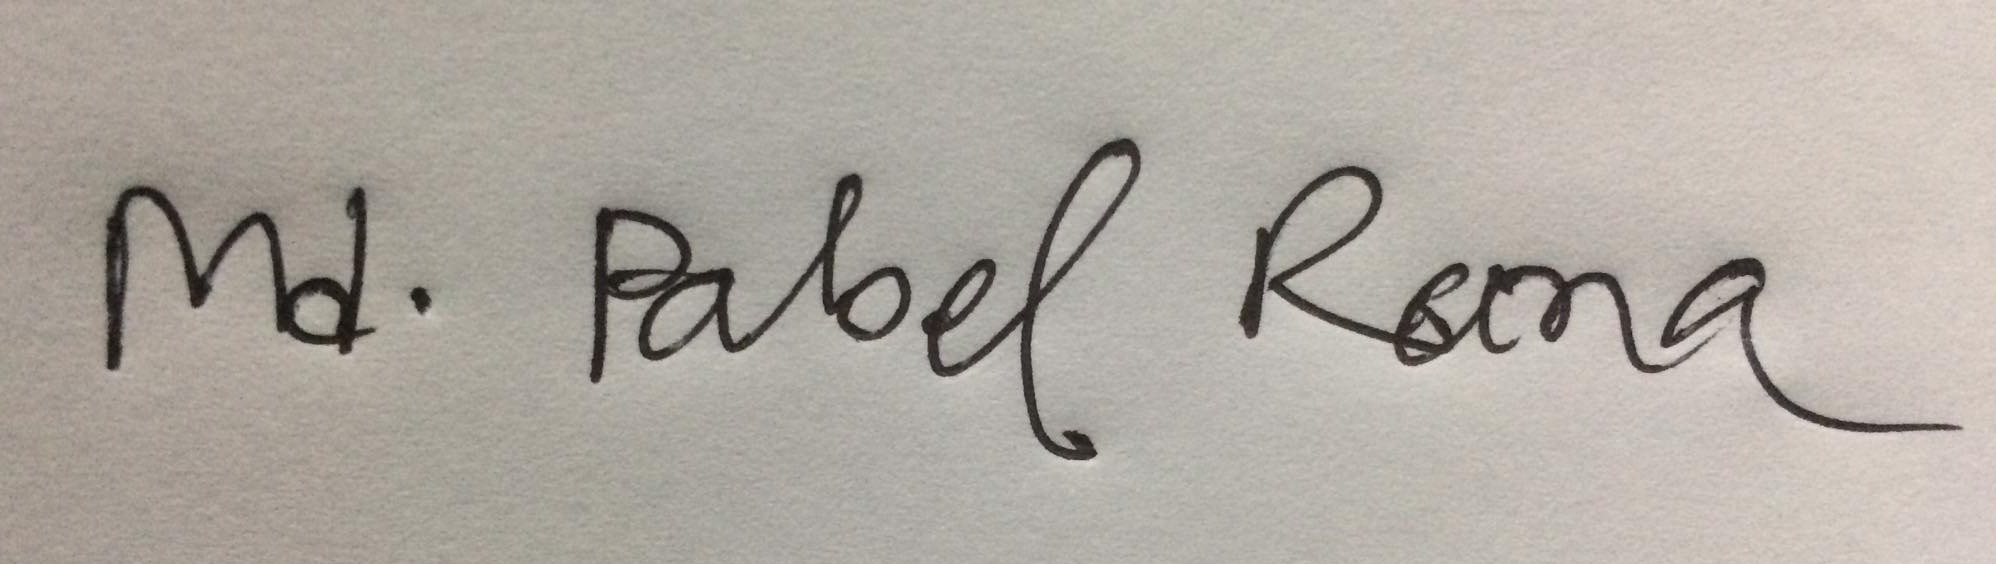 Md. Pabel Rana